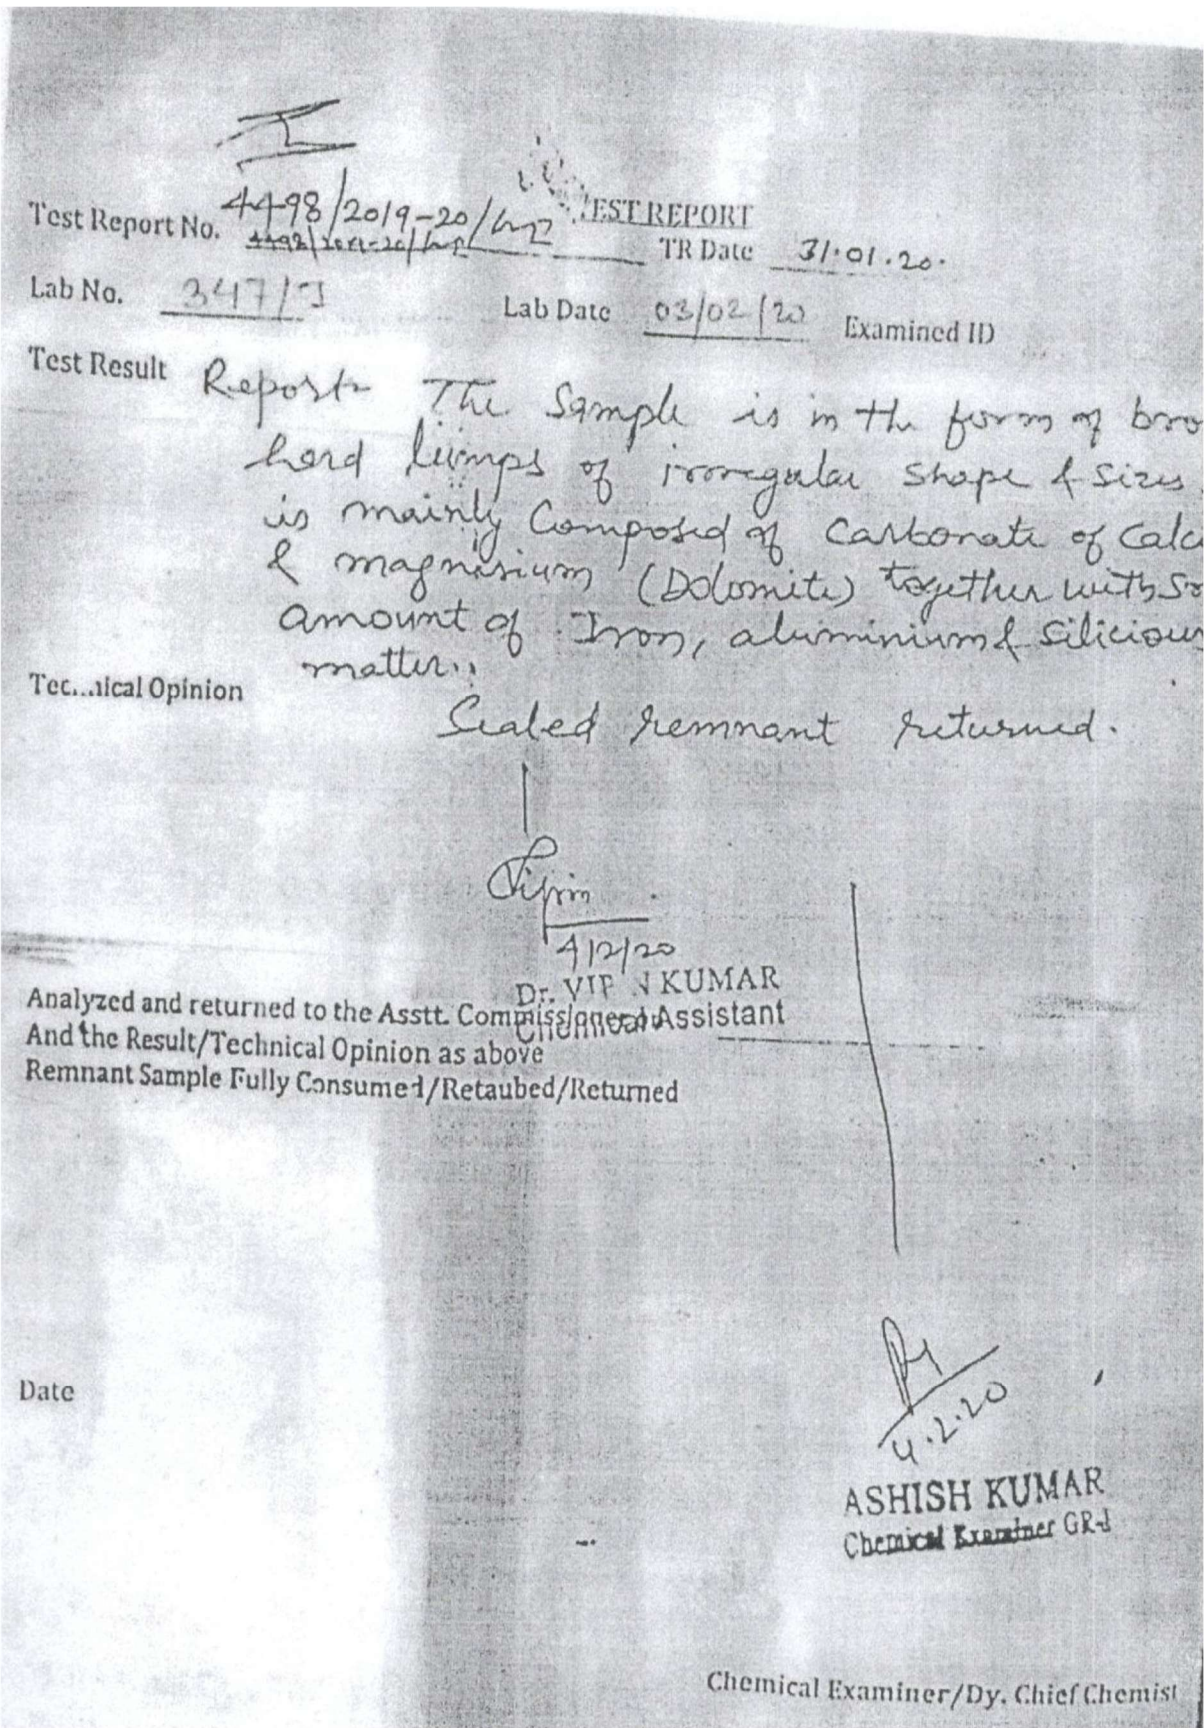 I
TEST REPORT
Test Report No. 4498/2019-20/Imp
4498/2019-20/Imp
TR Date 31.01.20.
Lab No. 347/I
Lab Date 03/02/20 Examined ID
Test Result Report- The Sample is in the form of bro
hard lumps of irregular shape & sizes.
is mainly Composed of Carbonate of Calc
& magnesium (Dolomite) together with
amount of Iron, aluminium & silicious
matter.
Tec...ical Opinion
Sealed remnant returned.
Vipin
4/2/20
Dr. VIP N KUMAR
Chemical Assistant
Analyzed and returned to the Asstt. Commissioner
And the Result/Technical Opinion as above
Remnant Sample Fully Consumed/Retaubed/Returned
Date
4.2.20
ASHISH KUMAR
Chemical Examiner GR-I
Chemical Examiner/Dy. Chief Chemist